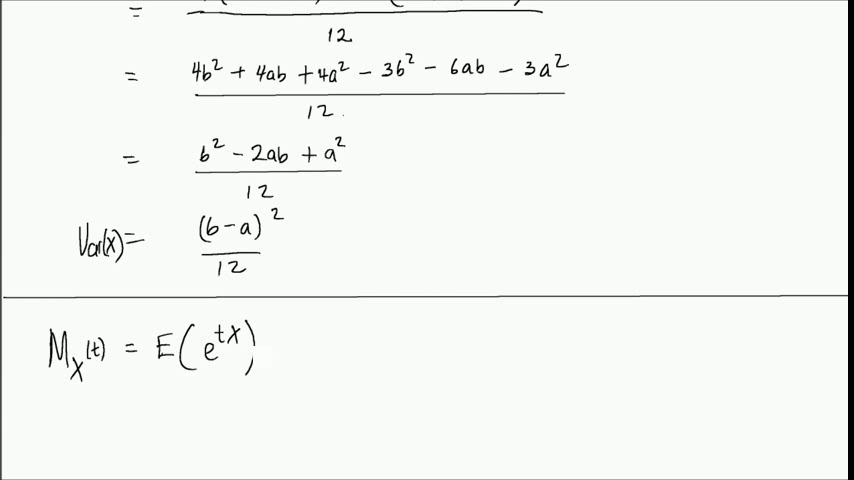 =
12
= 4b² + 4ab + 4a² - 3b² - 6ab - 3a²
12
= b² - 2ab + a²
12
Var(X) = (b-a)²
12
M_X(t) = E(e^{tX})